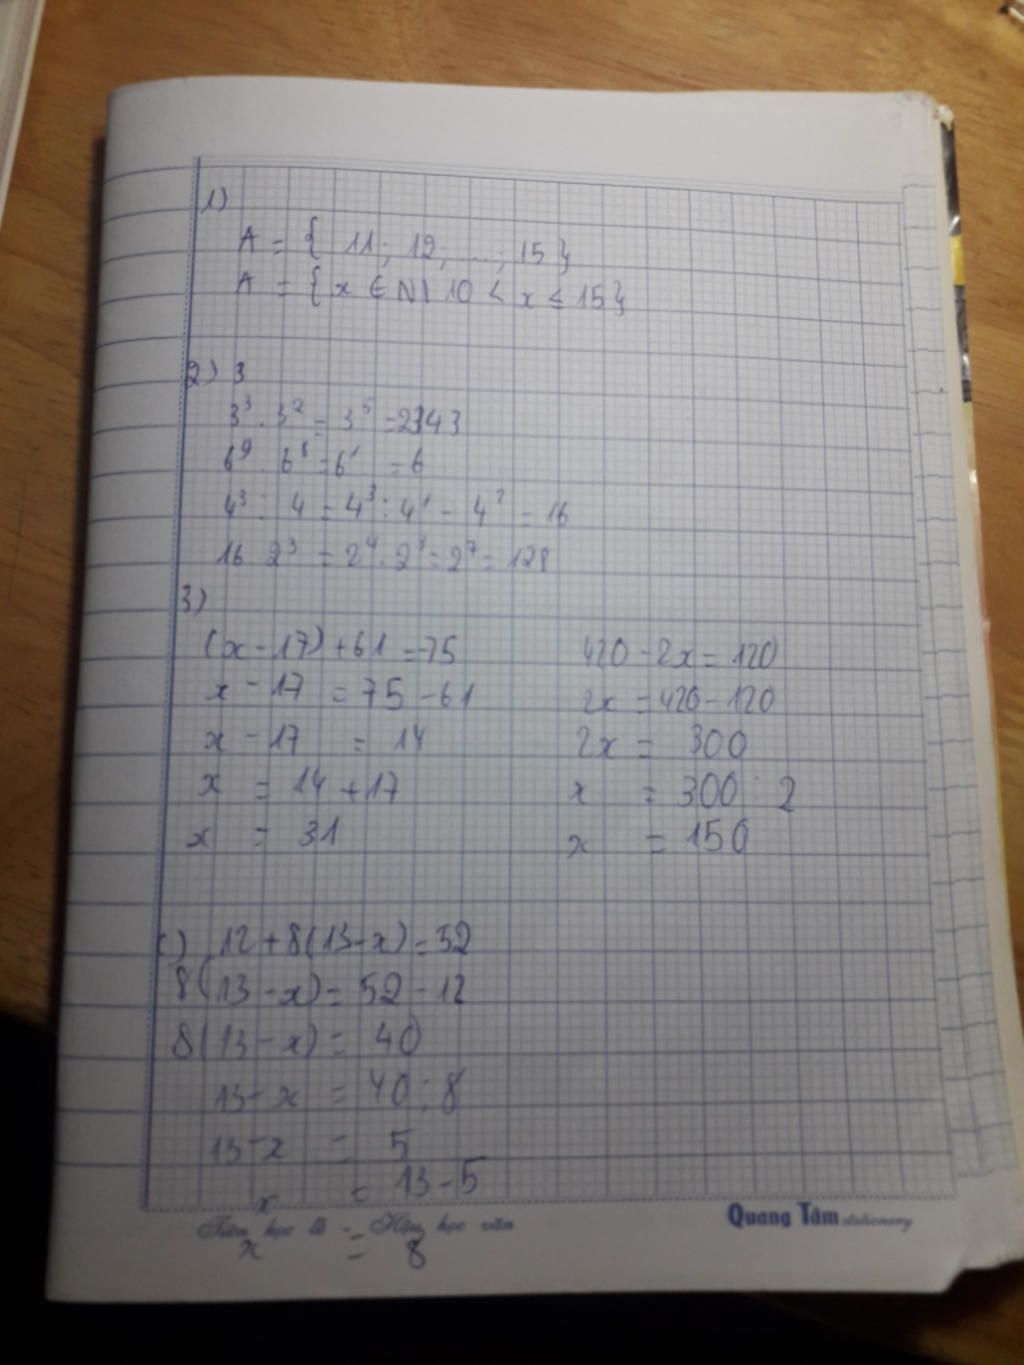 1)
A = { 11; 12; ...; 15 }
A = { x ∈ N | 10 < x ≤ 15 }
2) 3
3³ . 3² = 3⁵ = 2343
6⁹ : 6⁸ = 6¹ = 6
4³ : 4 = 4³ : 4¹ = 4² = 16
16 2³ = 2⁴ . 2³ = 2⁷ = 128
3)
(x - 17) + 61 = 75
x - 17 = 75 - 61
x - 17 = 14
x = 14 + 17
x = 31
420 - 2x = 120
2x = 420 - 120
2x = 300
x = 300 : 2
x = 150
c) 12 + 8(13 - x) = 52
8(13 - x) = 52 - 12
8(13 - x) = 40
13 - x = 40 : 8
13 - x = 5
x = 13 - 5
Tiên học lễ - Hậu học văn
Quang Tâm stationery
x = 8